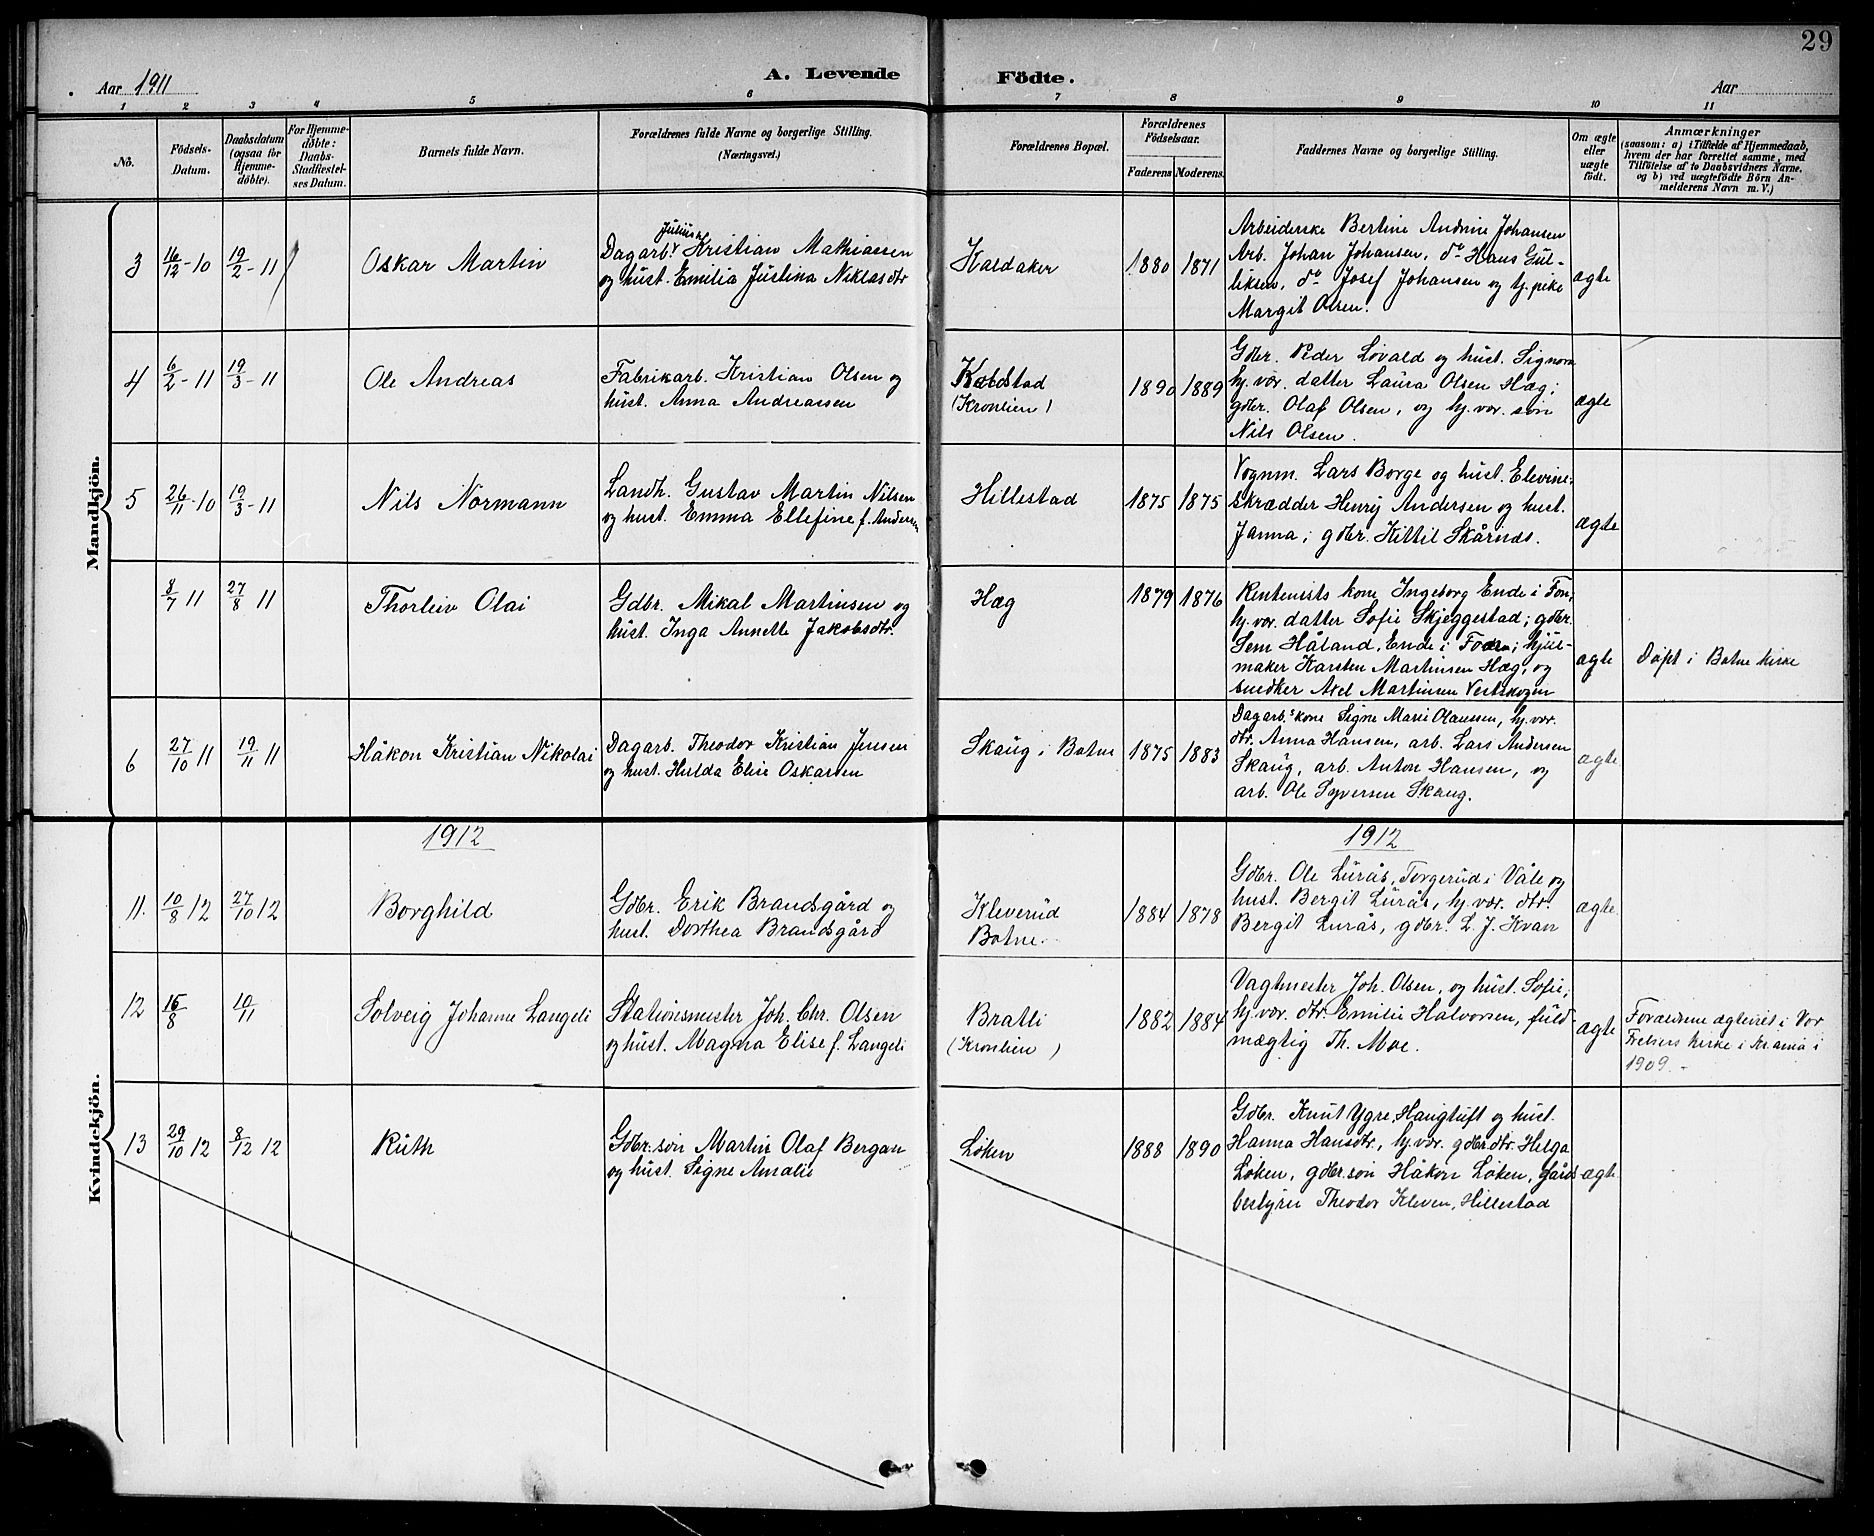 29
Aar 1911
A. Levende Födte.
Aar
1 2 3 4 5 6 7 8 9 10 11
No.
Födsels-
Datum.
Daabsdatum
(ogsaa for
Hjemme-
döbte).
For Hjemme-
döbte:
Daabs-
Stadfestel-
ses Datum.
Barnets fulde Navn.
Forældrenes fulde Navne og borgerlige Stilling.
(Næringsvei.)
Forældrenes Bopæl.
Forældrenes
Födselsaar.
Faderens Moderens
Faddernes Navne og borgerlige Stilling.
Om ægte
eller
uægte
født.
Anmærkninger
(saasom: a) i Tilfælde af Hjemmedaab,
hvem der har forrettet samme, med
Tilföielse af to Daabsvidners Navne,
og b) ved uægtefödte Börn An-
melderens Navn m. V.)
Mandkjön.
3
16/12 - 10
19/2 - 11
Oskar Martin
Julius
Dagarb. Kristian Mathiassen
og hust. Emilia Justina Niklasdtr
Kaldaker
1880
1871
Arbeiderske Bertine Andrine Johansen
Arb. Johan Johansen, do Hans Gul-
liksen, do Josef Johansen og tj. pike
Margit Olsen.
ægte
4
6/2 - 11
19/3 - 11
Ole Andreas
Fabrikarb. Kristian Olsen og
hust. Anna Andreassen
Kabstad
(Kronlien)
1890
1889
Gdbr. Peder Lovald og hust. Signora
hj. vær. datter Laura Olsen Hæg;
gdbr. Olaf Olsen, og hj. vær. søn
Nils Olsen.
ægte
5
26/11 - 10
19/3 - 11
Nils Normann
Landh. Gustav Martin Nilsen
og hust. Emma Ellefine f. Andersen
Hillestad
1875
1875
Vognm. Lars Borge og hust. Elevine;
skrædder Henry Andersen og hust.
Janna; gdbr. Kittil Skårnæs.
ægte
8/7 11
27/8 11
Thorleiv Olai
Gdbr. Mikal Martinsen og
hust. Inga Annette Jakobsdtr.
Hæg
1879
1876
Rentenists kone Ingeborg Ende i Fon,
hj. vær. datter Sofie Skjeggestad; gdbr.
Sem Håland, Ende i Foen; hjul-
maker Karsten Martinsen Hæg, og
snedker Axel Martinsen Vestskogen
ægte
Døpt i Botne kirke
6
27/10 11
19/11 11
Håkon Kristian Nikolai
Dagarb. Theodor Kristian Jensen
og hust. Hulda Elise Oskarsen
Skaug i Botne
1875
1883
Dagarb.s kone Signe Marie Olaussen, hj. vær.
dtr. Anna Hansen, arb. Lars Andersen
Skaug, arb. Anton Hansen, og
arb. Ole Syversen Skaug.
ægte
Kvindekjön.
1912
1912
11.
10/8 12
27/10 12
Borghild
Gdbr. Erik Brandsgård og
hust. Dorthea Brandsgård
Kleverud
Botne.
1884
1878
Gdbr. Ole Lurås, Torgerud i Våle og
hust. Bergit Lurås, hj. vær. dtr.
Bergit Lurås, gdbr. L. J. Kvan
ægte
12
15/8
10/11
Solveig Johanne Langeli
Stationsmester Joh. Chr. Olsen
og hust. Magna Elise f. Langeli
Bratli
(Kronlien)
1882
1884
Vagtmester Joh. Olsen, og hust. Sofie,
hj. vær. dtr. Emilie Halvorsen, fuld
mægtig Th. Moe.
ægte
Forældrene ægteviet i Vor
Frelsers kirke i Kr.ania i
1909.-
13
29/10 12
8/12 12
Ruth
Gdbr. søn Martin Olaf Bergan
og hust. Signe Amalie
Løken
1888
1890
Gdbr. Knut Ygre, Haugtuft og hust.
Hanna Hansdtr, hj. vær. gdbr. dtr. Helga
Løken, gdbr. søn Håkon Løken, gårds
bestyrer Theodor Kleven, Hillestad
ægte